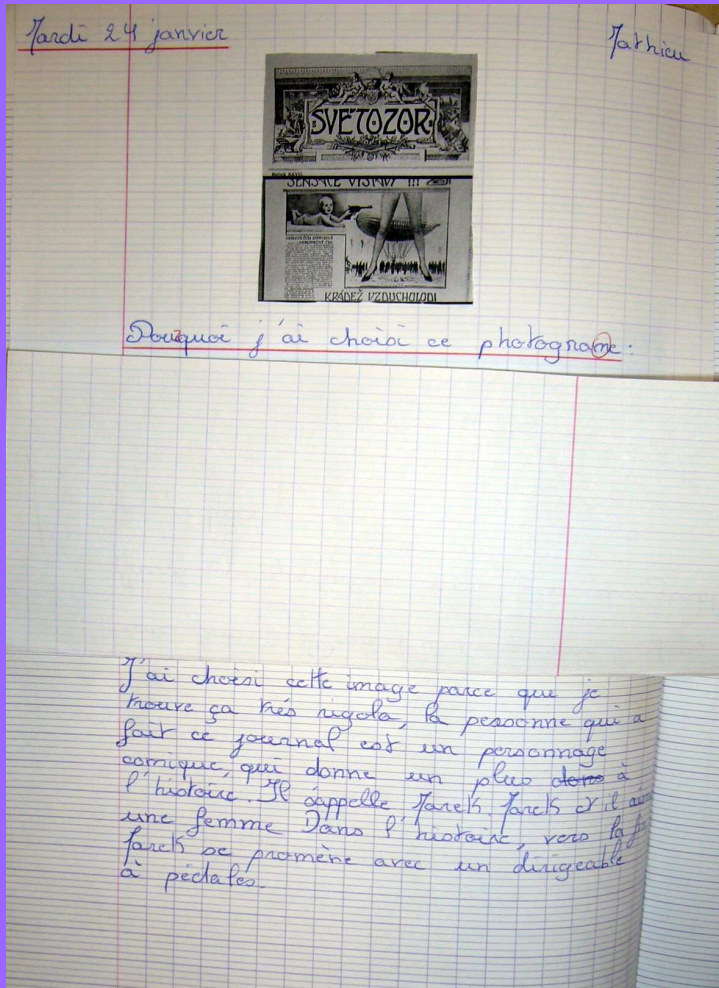 Mardi 24 janvier
Mathieu
SVĚTOZOR
KRÁDEŽ VZDUCHOLODI
Pourquoi j'ai choisi ce photograme :
J'ai choisi cette image parce que je
trouve ça très rigola, la personne qui a
fait ce journal est un personnage
comique, qui donne un plus dans à
l'histoire. Il s'appelle Jarek. Jarek il
une femme Dans l'histoire, vers la
Jarek se promène avec un dirigeable
à pédales.